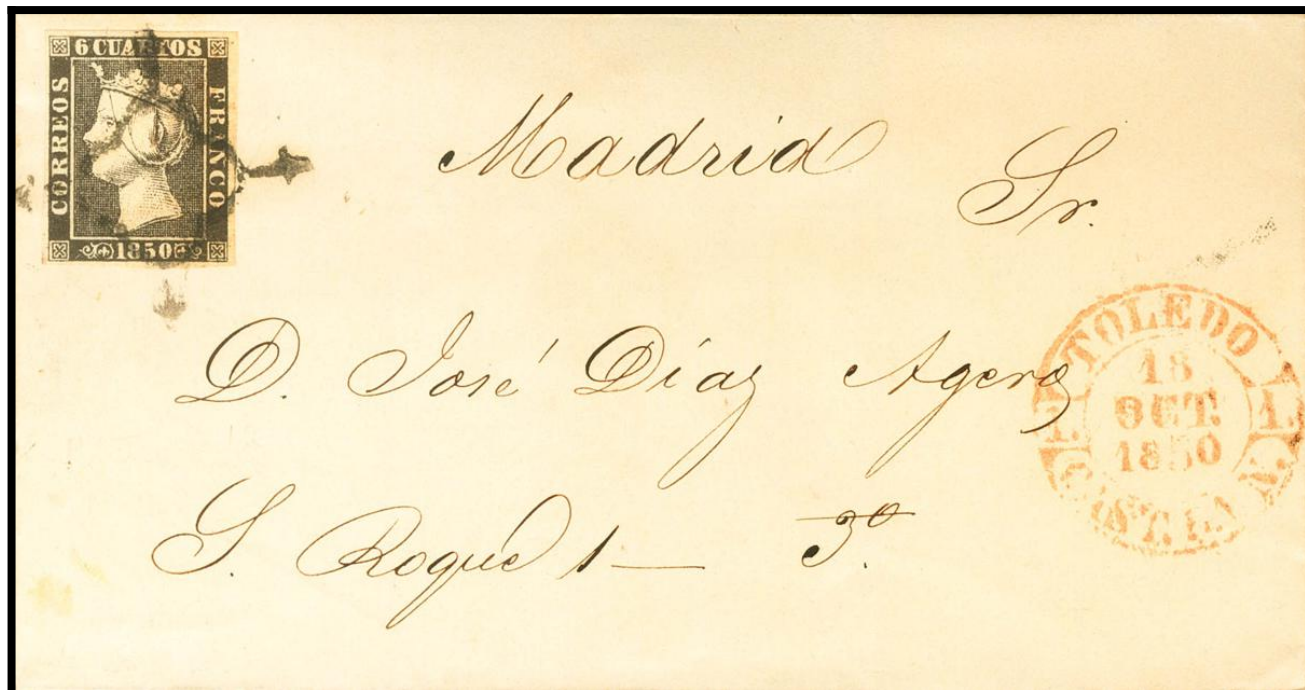 6 CUARTOS
CORREOS
FRANCO
1850
Madrid
Sr.
D. José Díaz Agero
S. Roque 1 — 3º
TOLEDO
18
OCT.
1850
1. 1.
CAST. LA N.